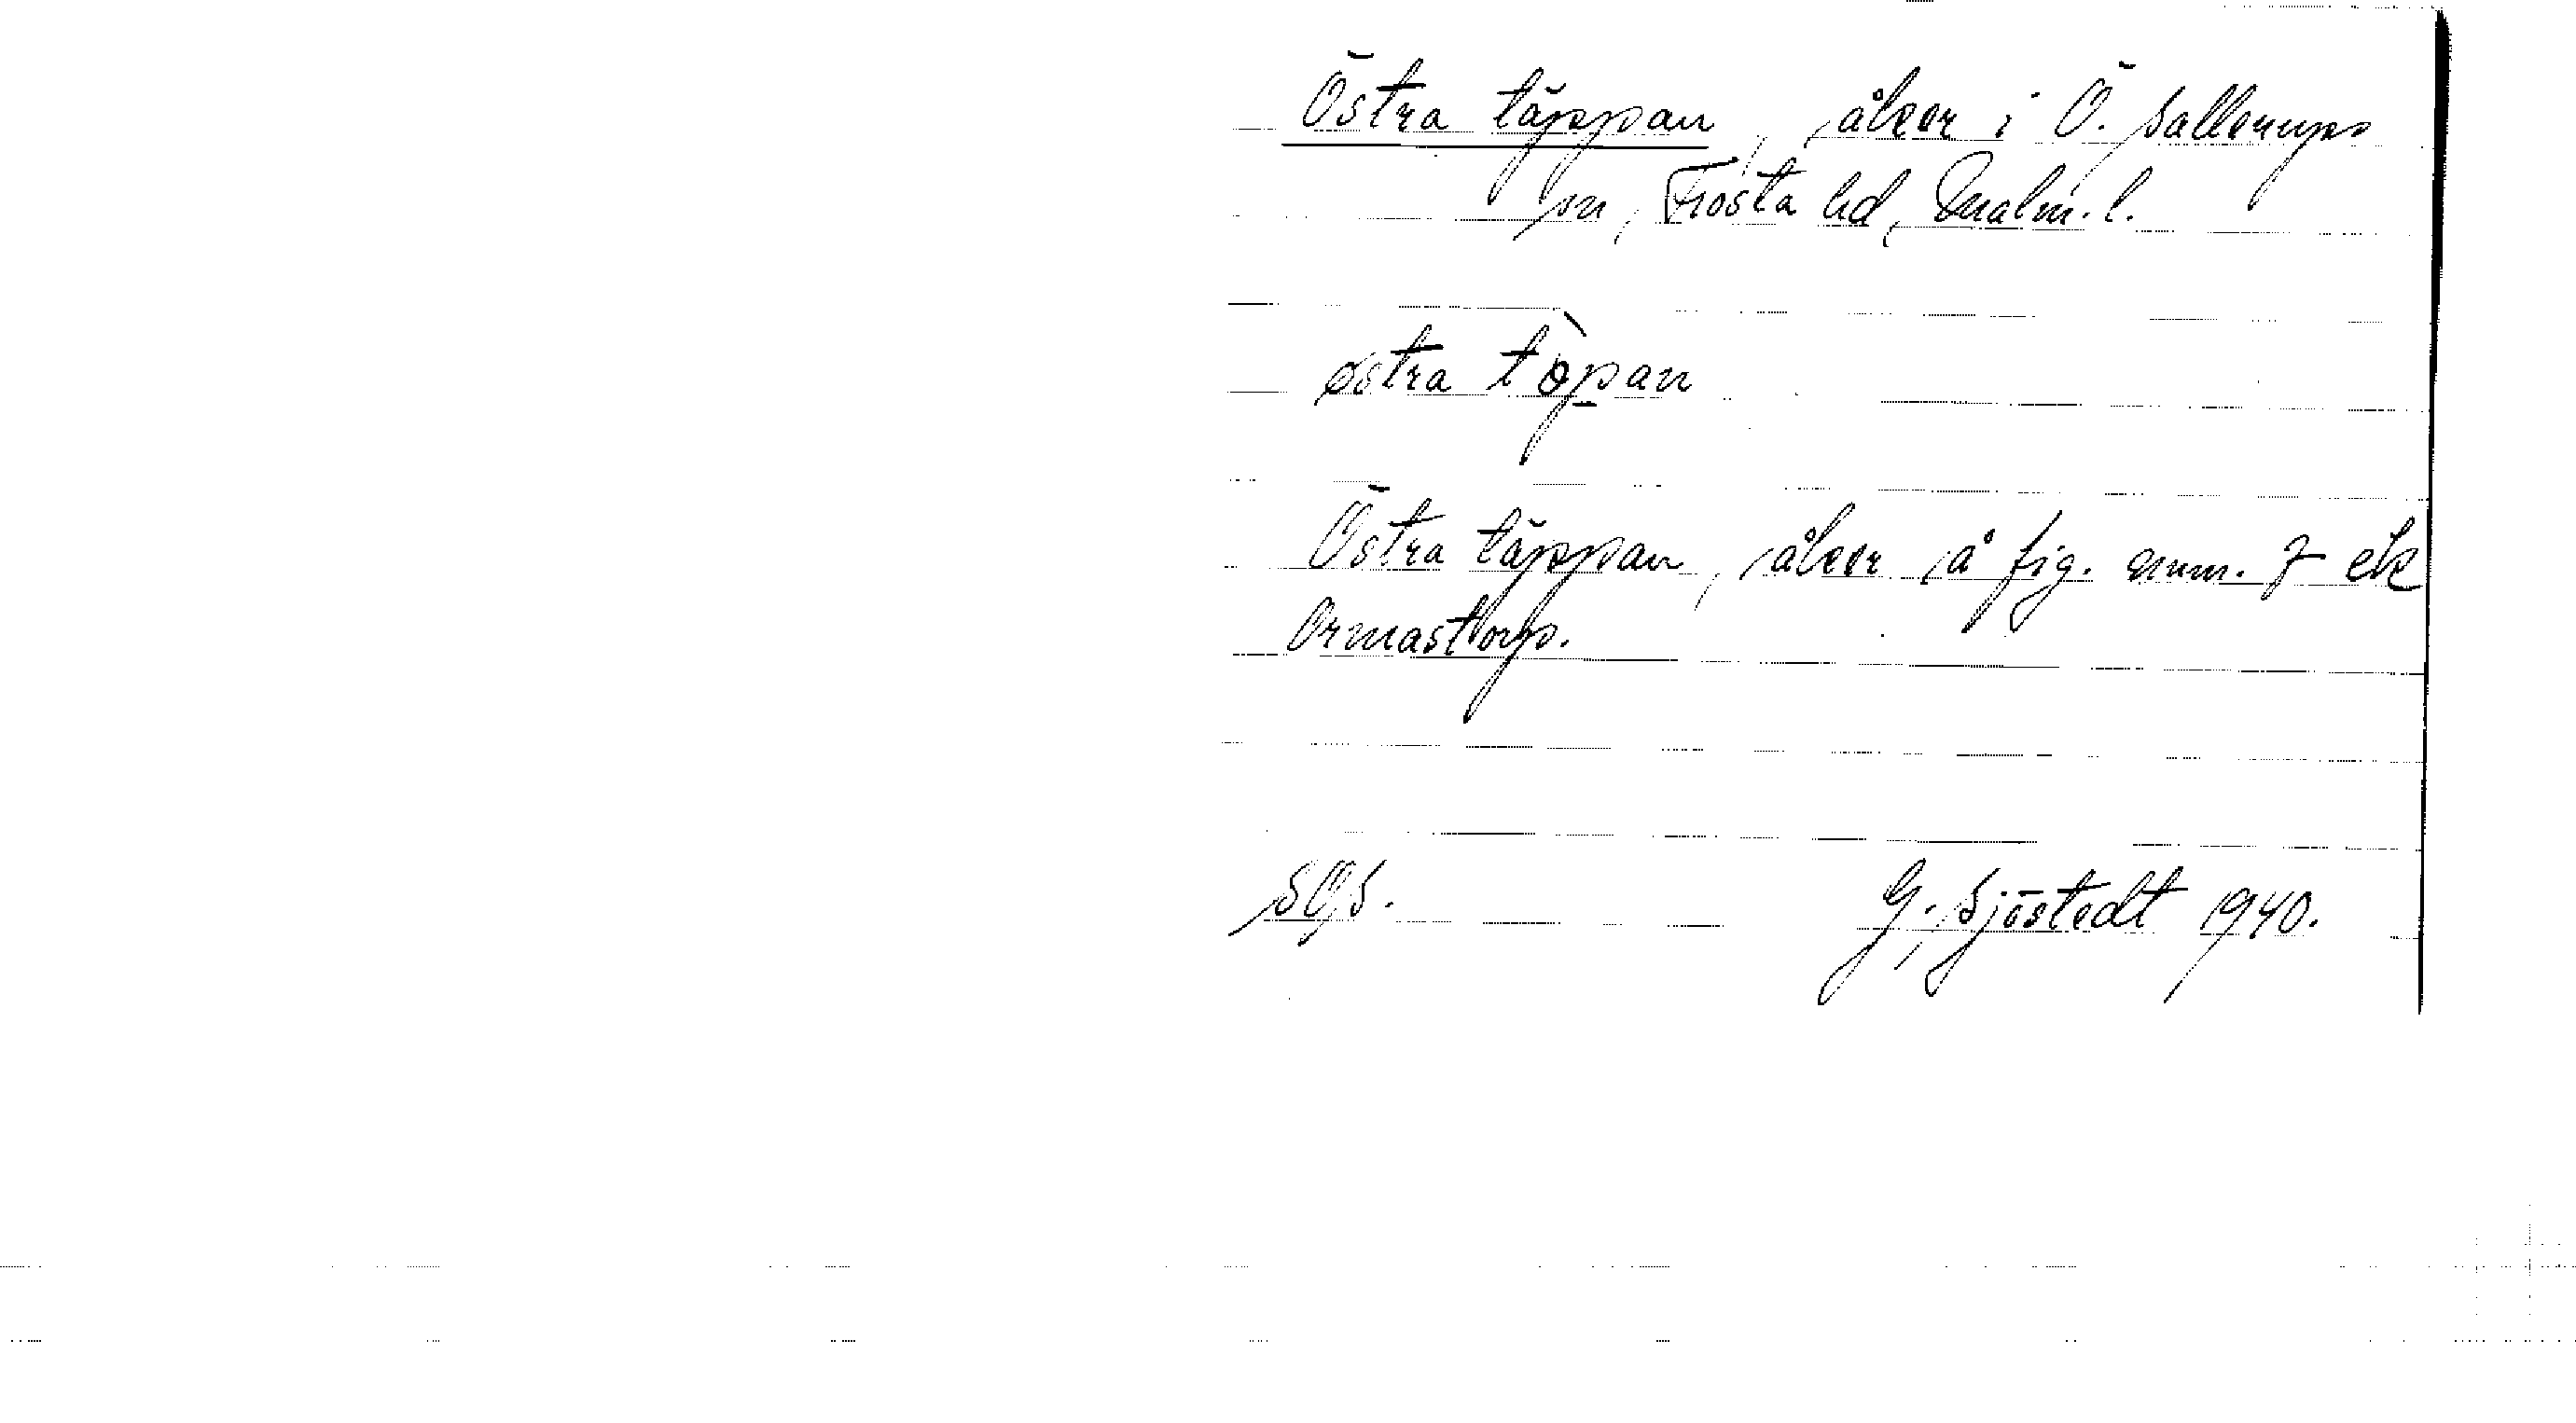 Östra täppan, åker i Ö. Sallerups
sn, Frosta hd, Malm. l.
östra tòpan
Östra täppan, åker å fig. num. 7 ek
Ormastorp.
SOS.
G. Sjöstedt 1940.